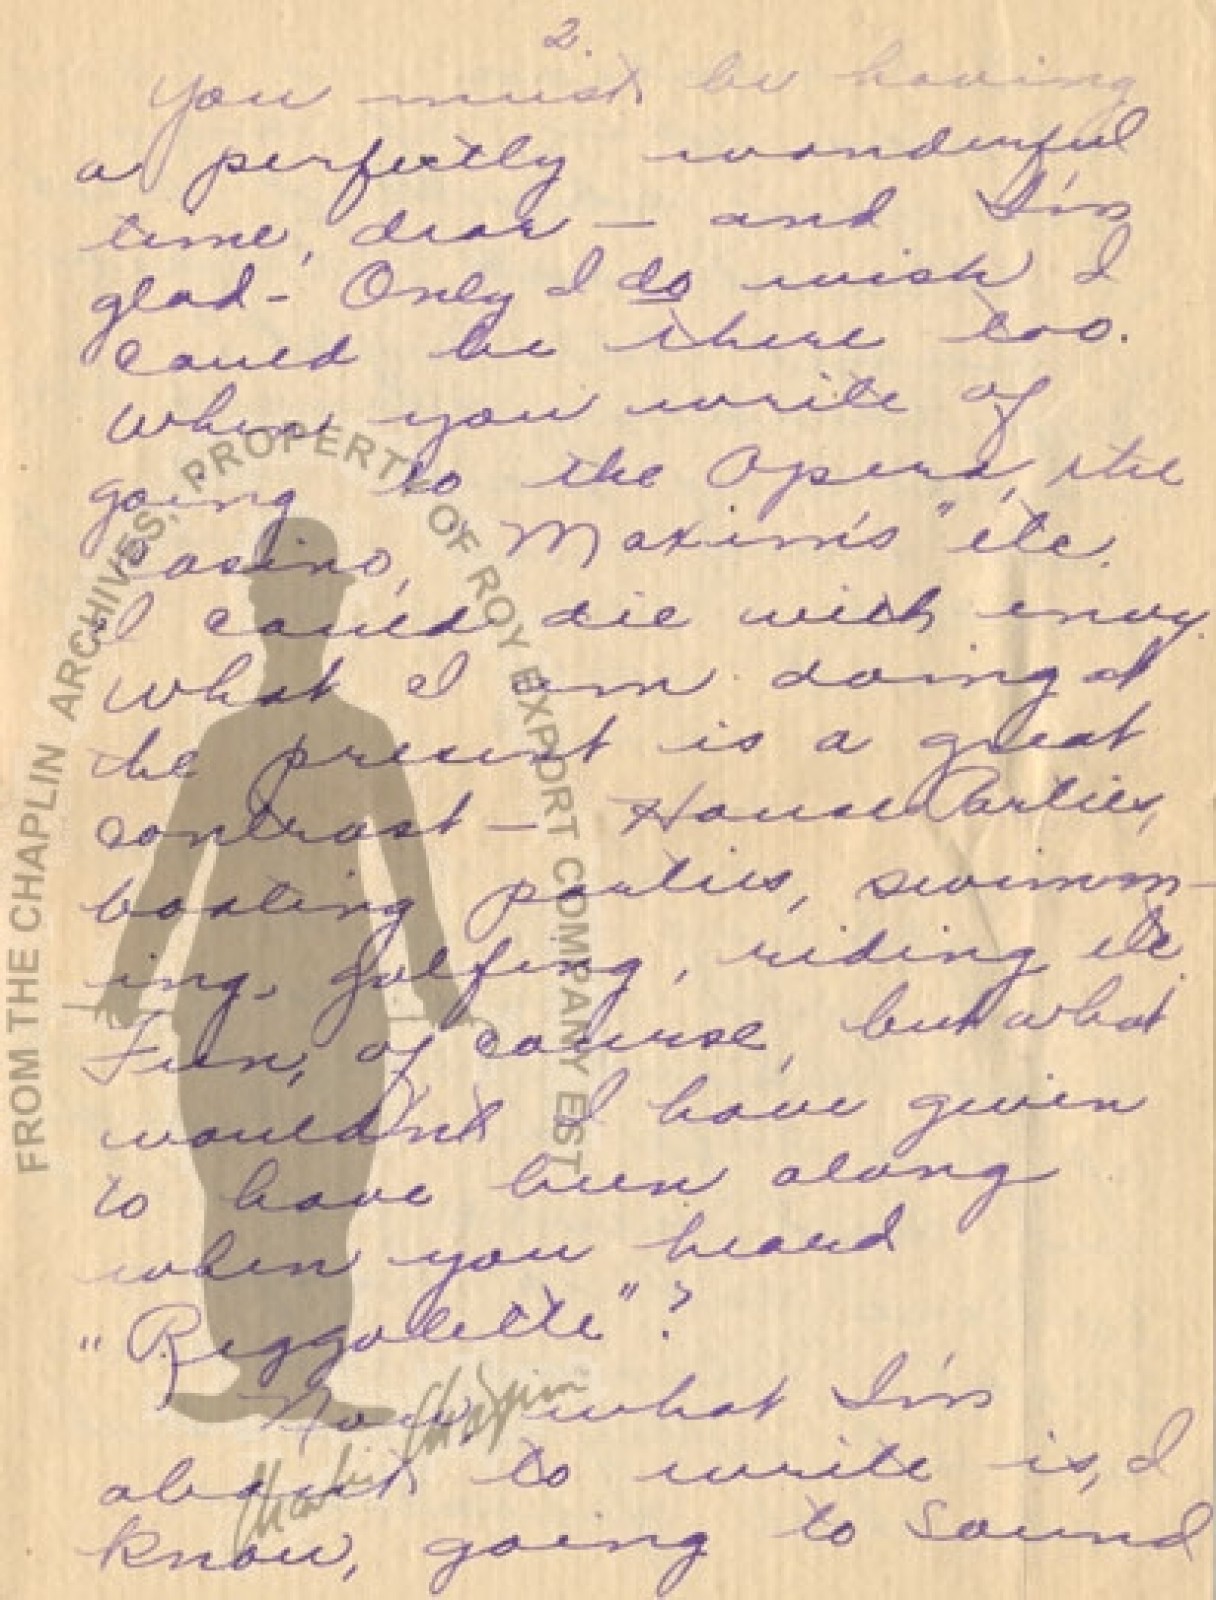 2.
You must be having
a perfectly wonderful
time, dear — and I'm
glad - Only I do wish I
could be there too.
When you write of
going to the Opera, the
Casino, "Maxim's" etc.
I could die with envy.
What I am doing at
the present is a great
contrast — House Parties,
boating parties, swimm-
ing, golfing, riding etc.
Fun, of course, but what
wouldn't I have given
to have been along
when you heard
"Riggolette"?
Now, what I'm
about to write is, I
know, going to sound
FROM THE CHAPLIN ARCHIVES, PROPERTY OF ROY EXPORT COMPANY EST
Charlie Chaplin